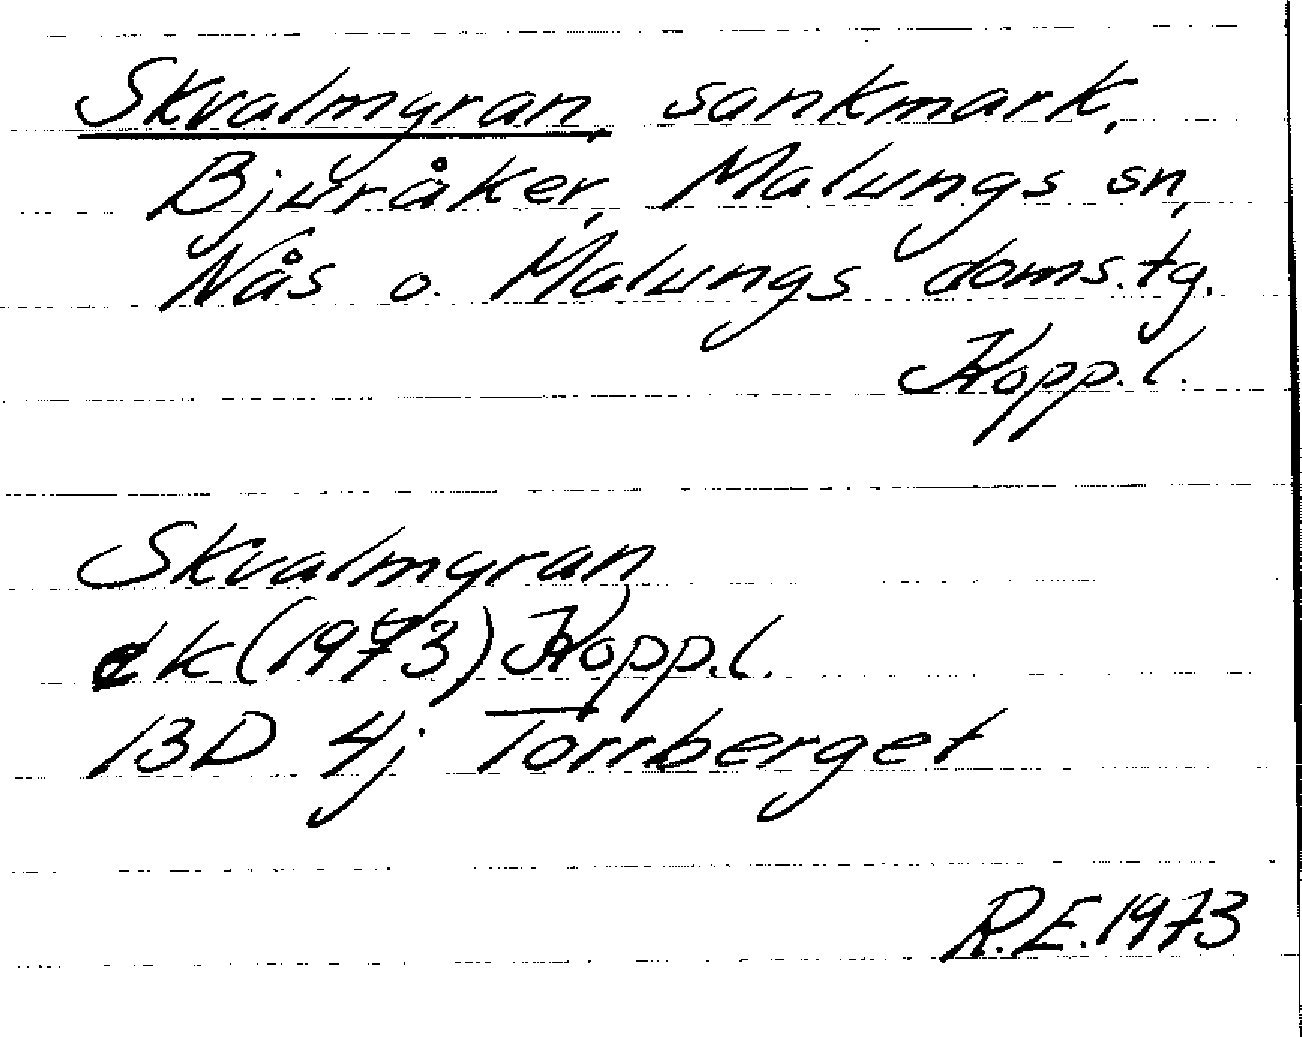 Skvalmyran, sankmark,
Bjuråker, Malungs sn,
Nås o. Malungs doms.tg.
Kopp.l.
Skvalmyran
ek (1973) Kopp.l.
13D 4j Torrberget
R.E. 1973